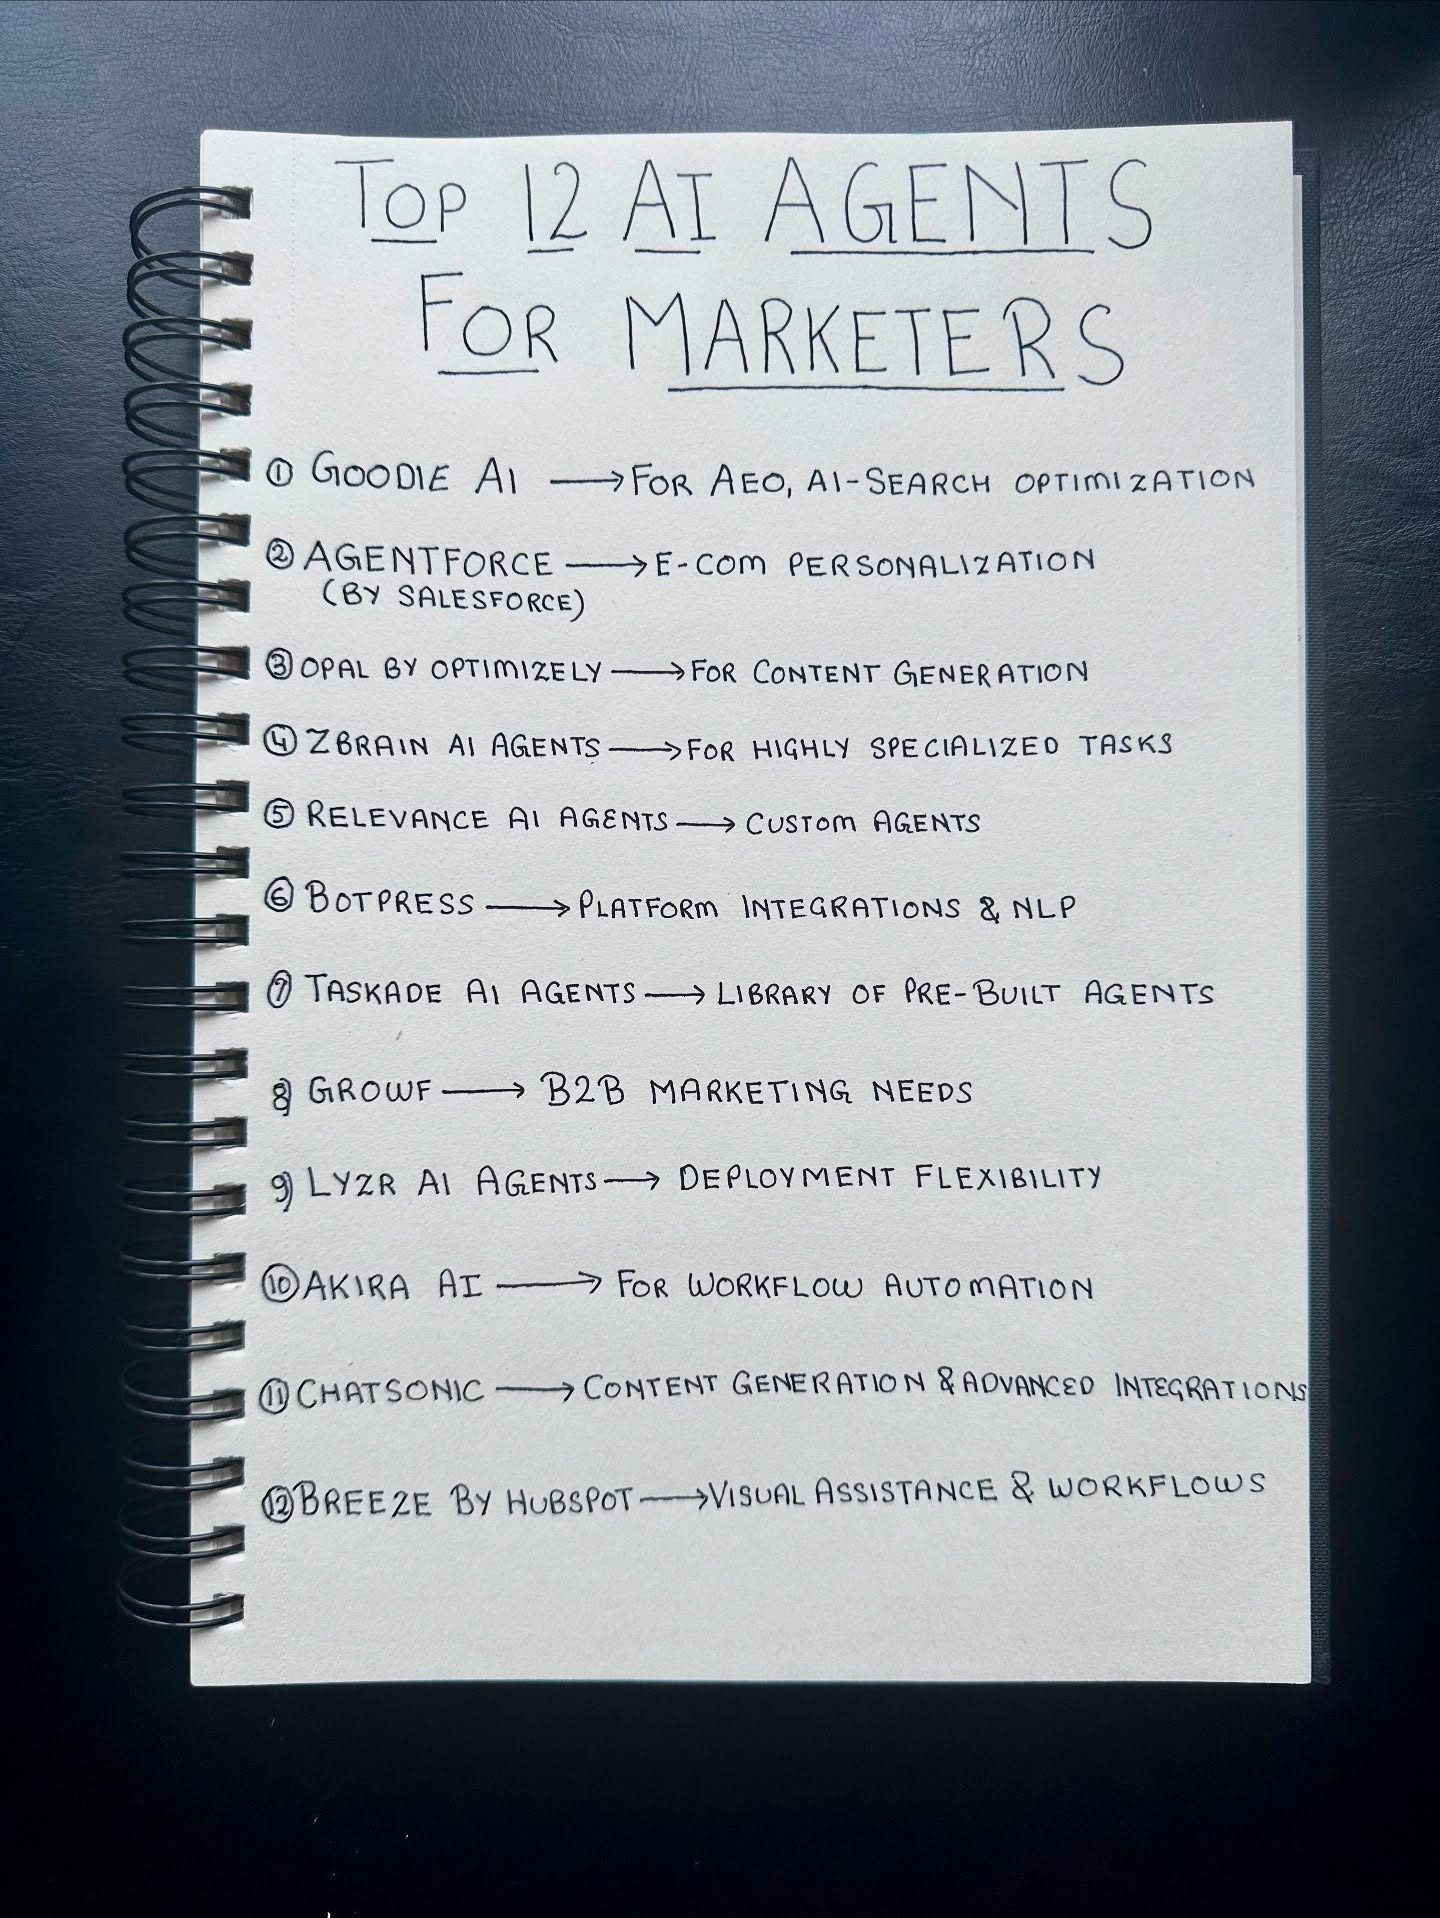 TOP 12 AI AGENTS
FOR MARKETERS
① GOODIE AI → FOR AEO, AI-SEARCH OPTIMIZATION
② AGENTFORCE → E-COM PERSONALIZATION
(BY SALESFORCE)
③ OPAL BY OPTIMIZELY → FOR CONTENT GENERATION
④ ZBRAIN AI AGENTS → FOR HIGHLY SPECIALIZED TASKS
⑤ RELEVANCE AI AGENTS → CUSTOM AGENTS
⑥ BOTPRESS → PLATFORM INTEGRATIONS & NLP
⑦ TASKADE AI AGENTS → LIBRARY OF PRE-BUILT AGENTS
8) GROWF → B2B MARKETING NEEDS
9) LYZR AI AGENTS → DEPLOYMENT FLEXIBILITY
⑩ AKIRA AI → FOR WORKFLOW AUTOMATION
⑪ CHATSONIC → CONTENT GENERATION & ADVANCED INTEGRATIONS
⑫ BREEZE BY HUBSPOT → VISUAL ASSISTANCE & WORKFLOWS